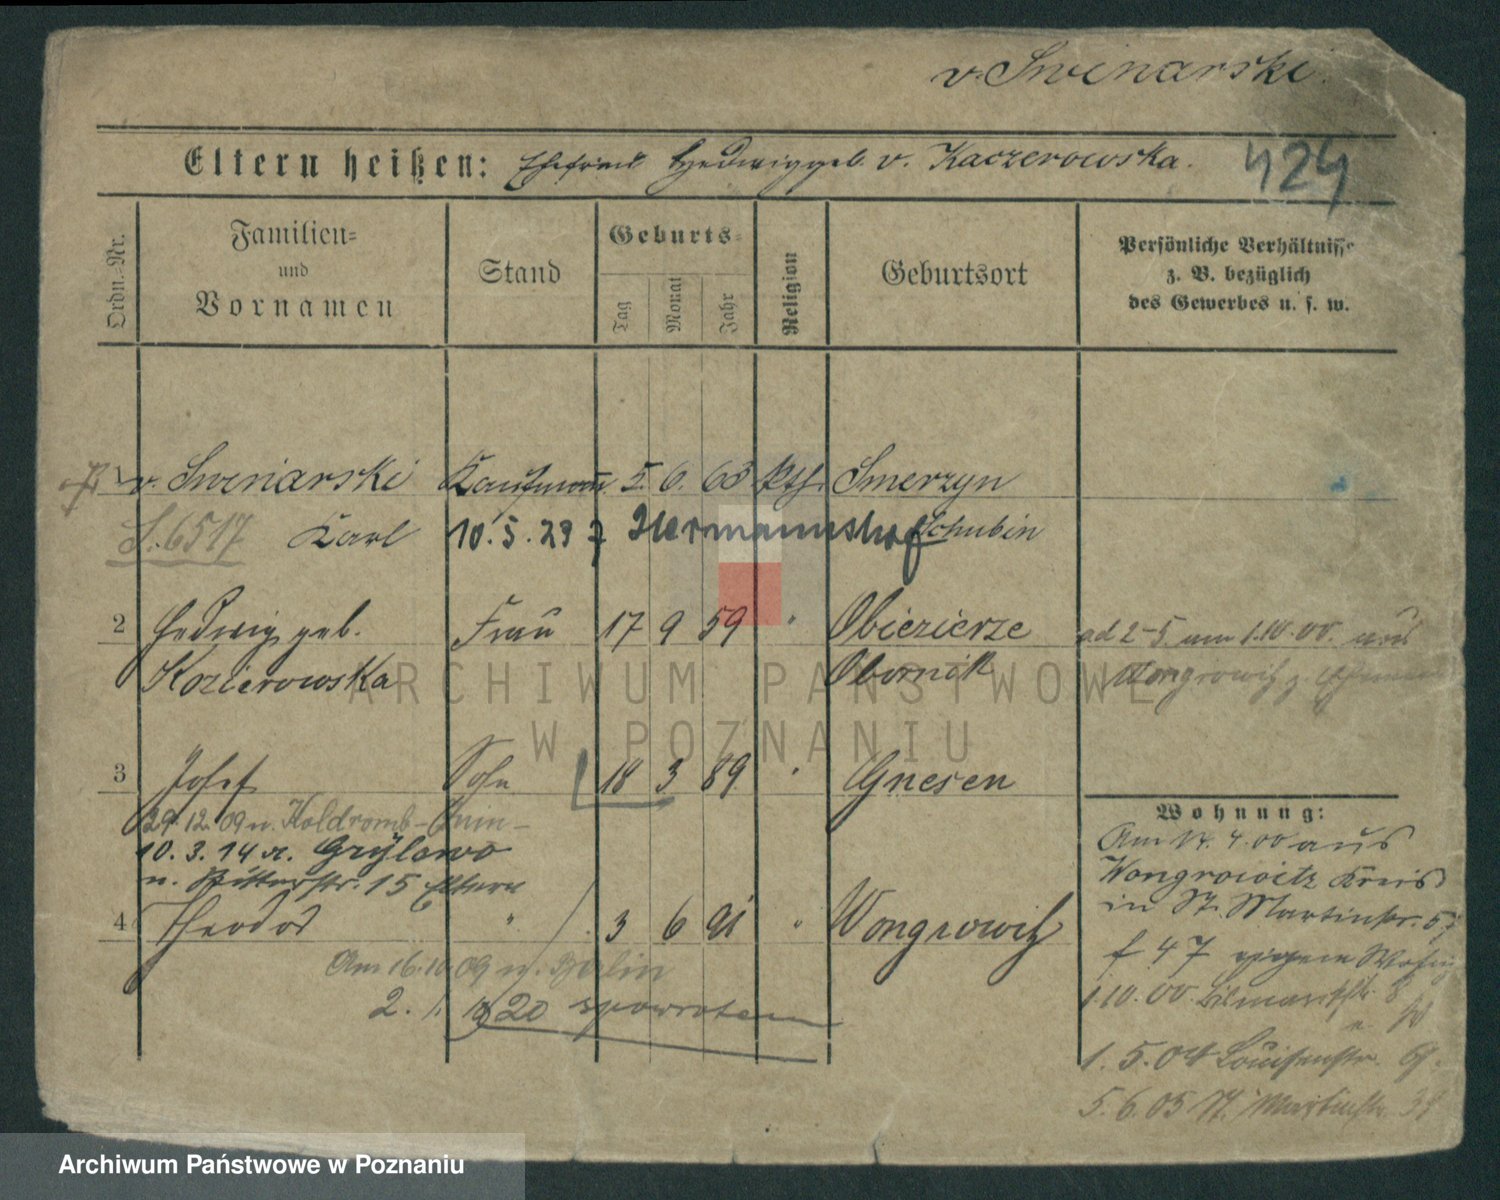 v. Swinarski.
Eltern heißen: Ehefrau Hedwig geb. v. Kaczerowska.
424
Ordn.-Nr.
Familien-
und
Vornamen
Stand
Geburts-
Tag
Monat
Jahr
Religion
Geburtsort
Persönliche Verhältnisse
z. B. bezüglich
des Gewerbes u. s. w.
1 v. Swinarski Kaufmann 5. 6. 63 kth. Smerzyn
S. 6517 Karl 10.5.29 Hermannshof Schubin
2 Hedwig geb. Frau 17 9 59 " Obiezierze ad 2-5. am 1.10.00. aus
Kozierowska Obornik Wongrowitz z.
3 Josef Sohn 18 3 89 " Gnesen
29.12.09 n.
10.3.14 v. Grylewo
n. Ritterstr. 15 Eltern
4 Theodor " 3 6 91 " Wongrowitz
Am 16.10.09 n. Berlin
2. 1. 1920 spowrotem
Wohnung:
Am 17. 4. 00 aus
Wongrowitz Kreis
in St. Martinstr. 57
f 47 eigene Wohng
1.10.00. Bismarckstr. 8
1. 5. 04 Louisenstr.
5. 6. 05 St. Martinstr. 38
ARCHIWUM PAŃSTWOWE
W POZNANIU
Archiwum Państwowe w Poznaniu